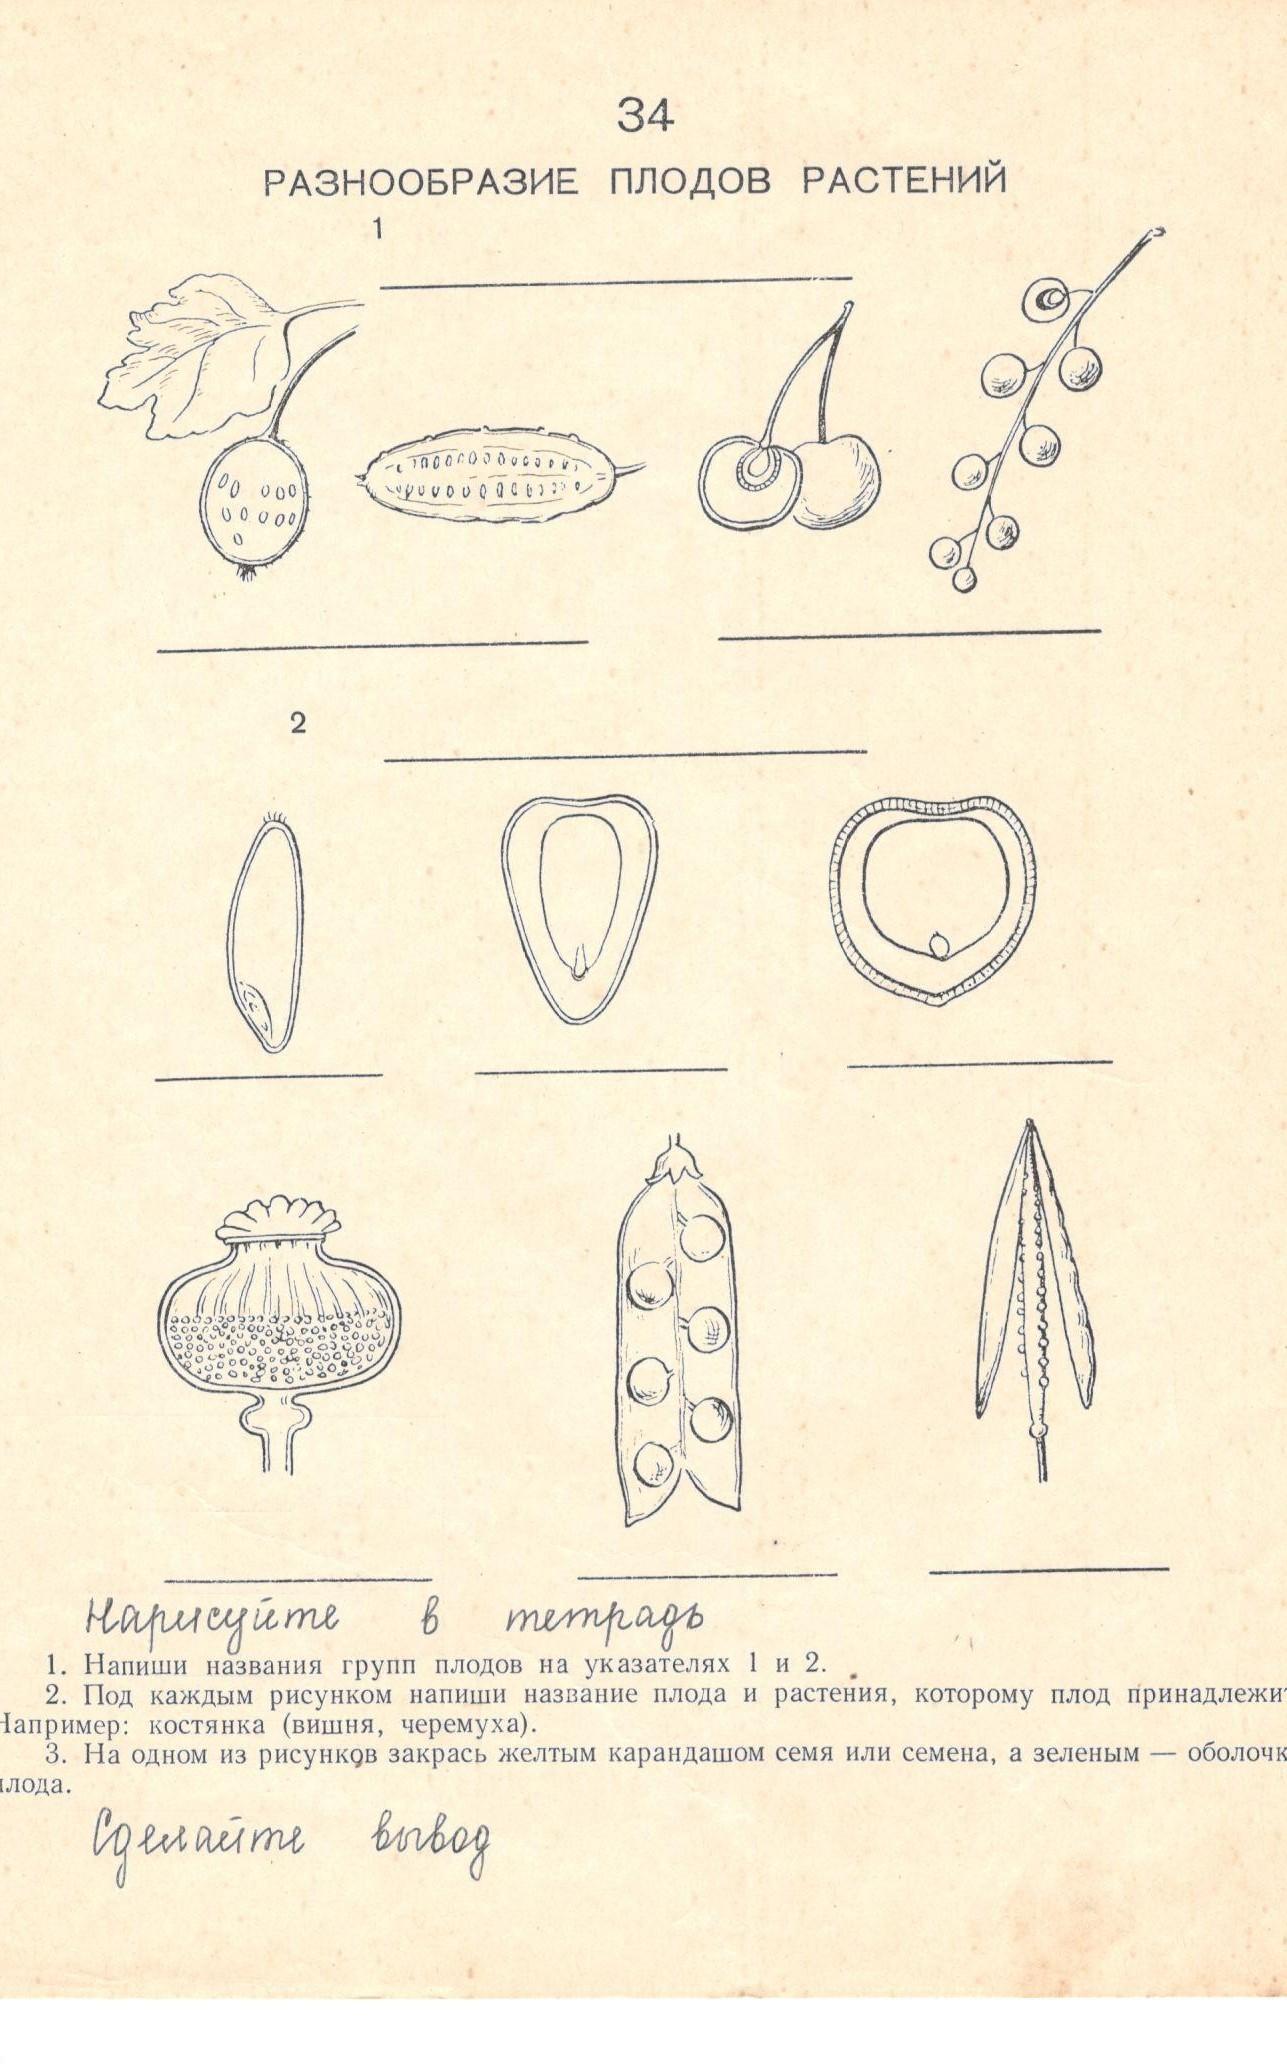 34
РАЗНООБРАЗИЕ ПЛОДОВ РАСТЕНИЙ
1
2
Нарисуйте в тетрадь
1. Напиши названия групп плодов на указателях 1 и 2.
2. Под каждым рисунком напиши название плода и растения, которому плод принадлежит
Например: костянка (вишня, черемуха).
3. На одном из рисунков закрась желтым карандашом семя или семена, а зеленым — оболочк
плода.
Сделайте вывод